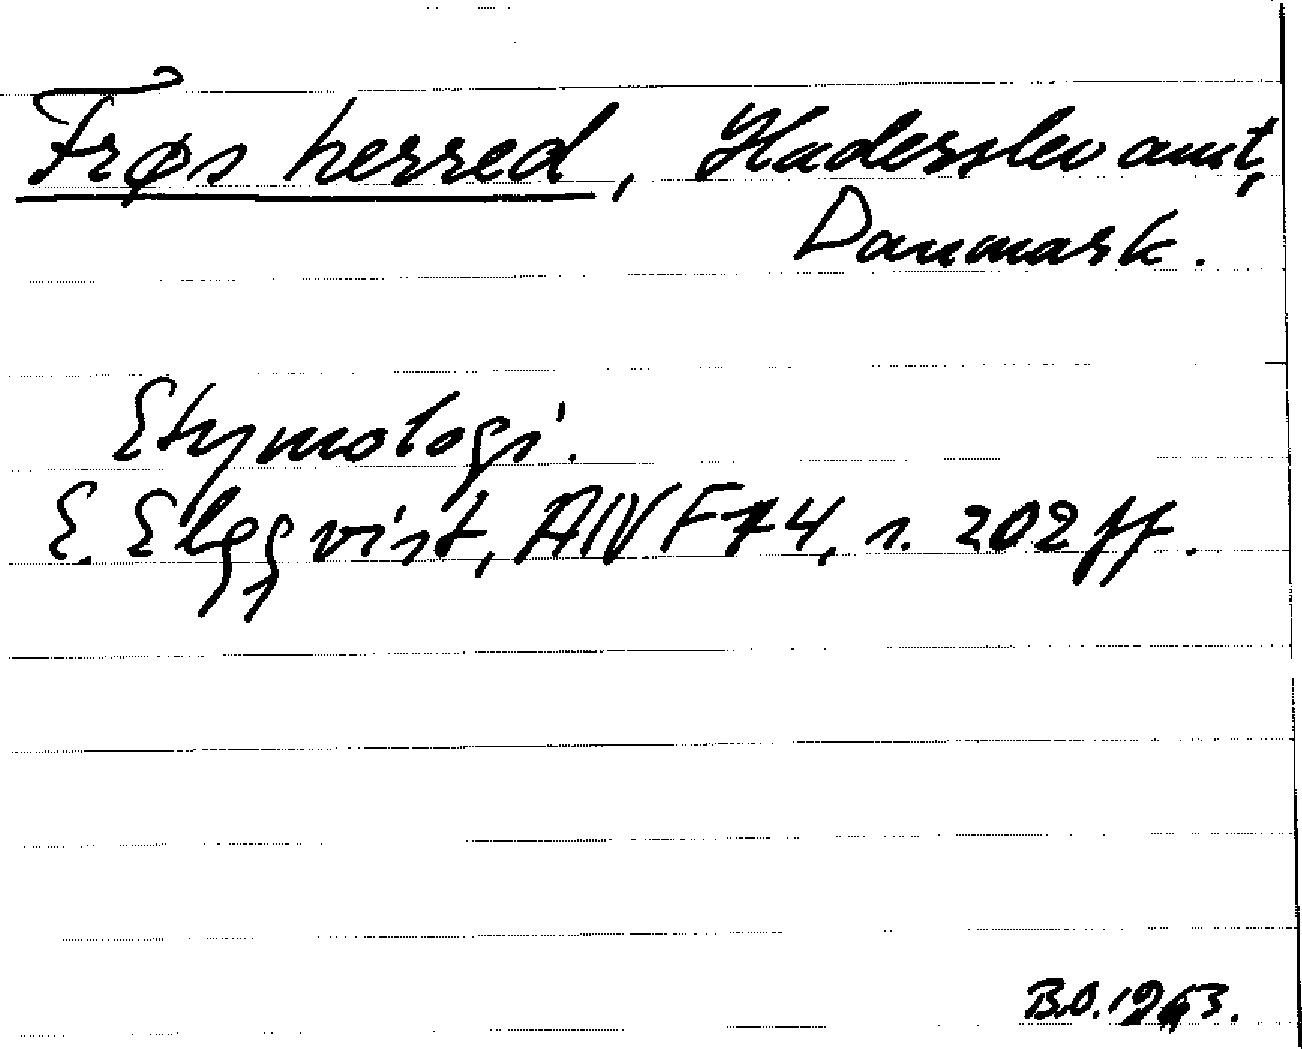 Frøs herred, Haderslev amt,
Danmark.
Etymologi.
E. Elgqvist, ANF 74, s. 202 ff.
B.O. 1963.